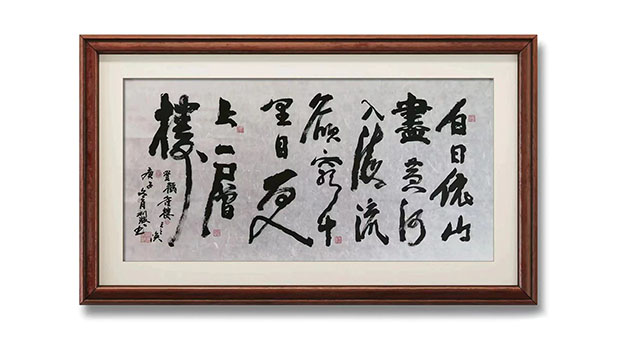 白日依山
盡黃河
入海流
欲窮千
里目更
上一層
樓
登鸛雀樓王之渙
庚子冬月
書